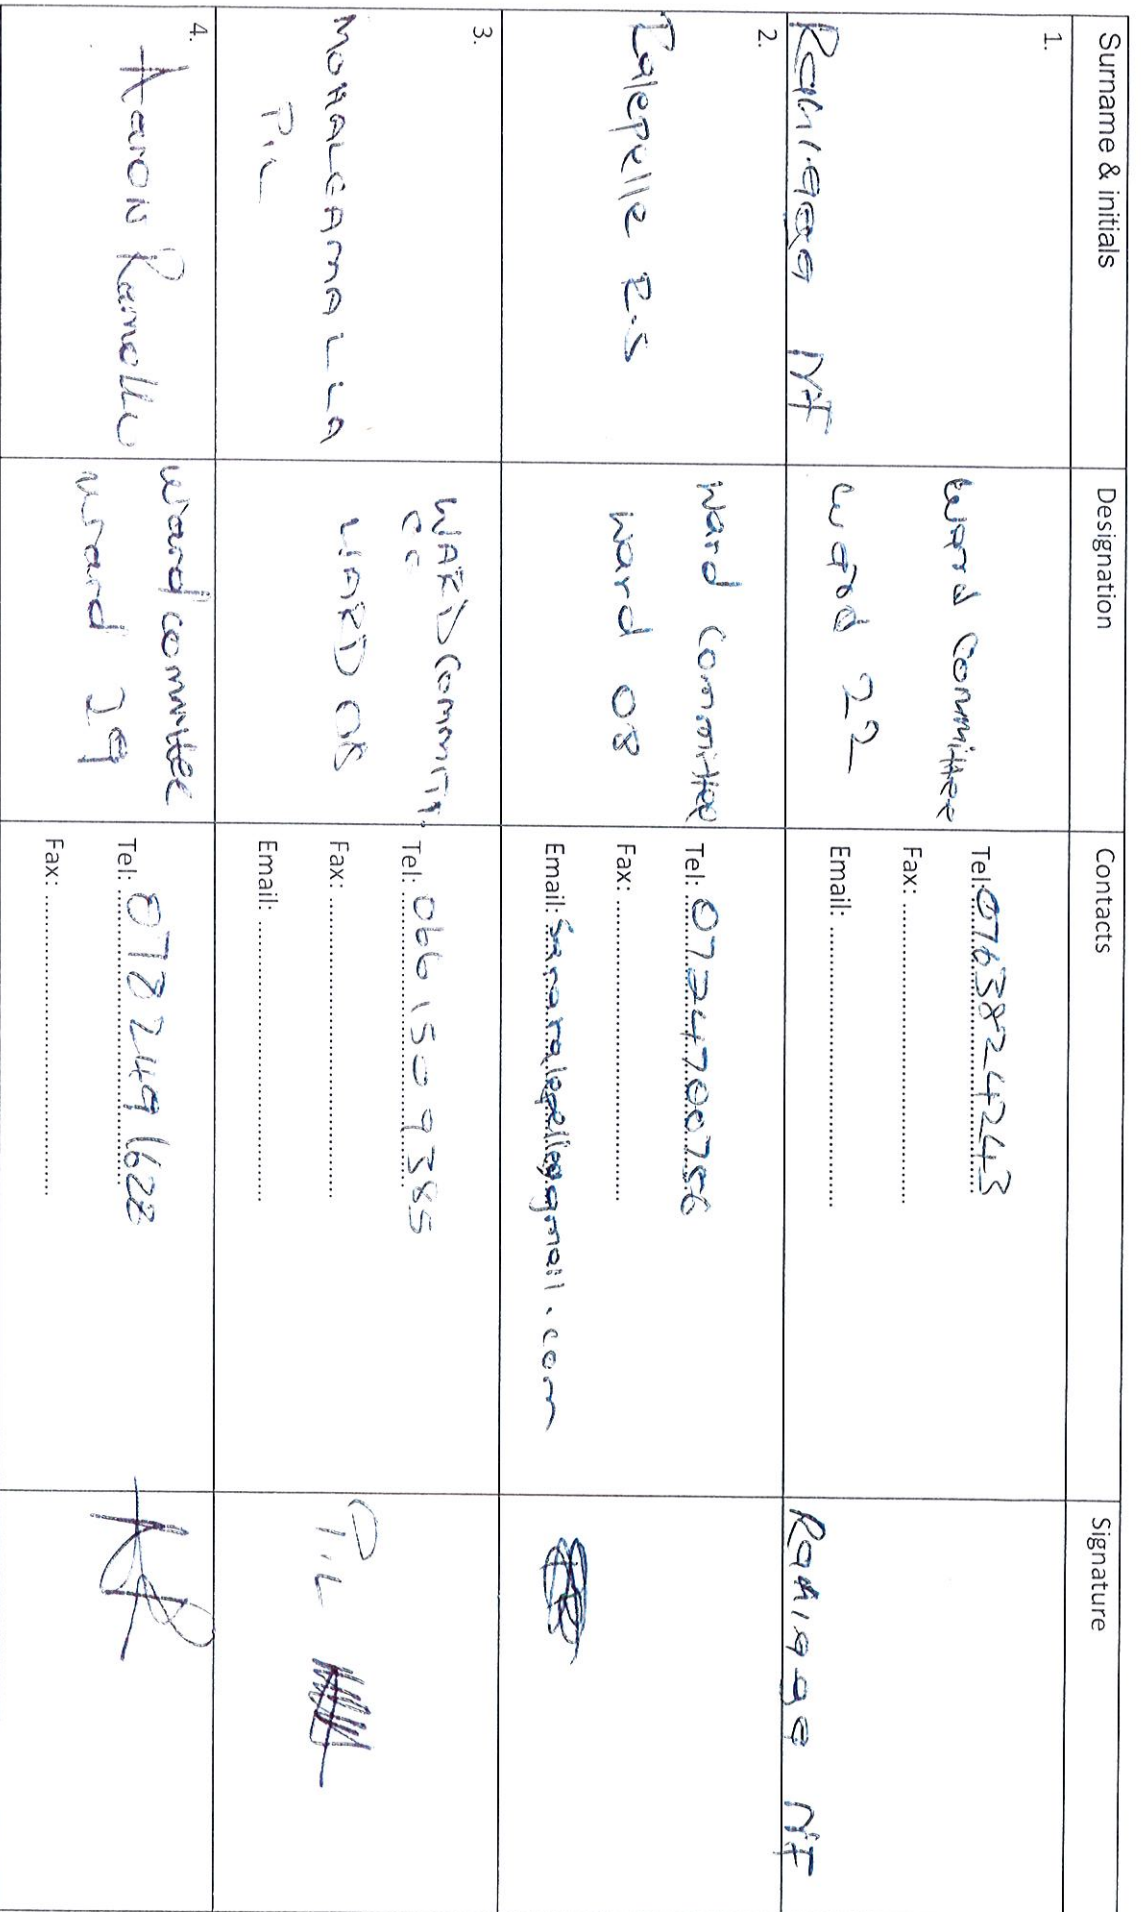 Surname & initials
Designation
Contacts
Signature
1.
NF
Ward Committee
Ward 22
Tel: 0763824243
Fax: ........................................
Email: ........................................
NF
2.
R.S
Ward Committee
Ward 08
Tel: 0724700756
Fax: ........................................
Email: Sararalepelle@gmail.com
3.
P.L
WARD COMMITT.
EE
WARD 08
Tel: 066 150 9385
Fax: ........................................
Email: ........................................
P.L
4.
Aaron
Ward committee
Ward 19
Tel: 0782491622
Fax: ........................................